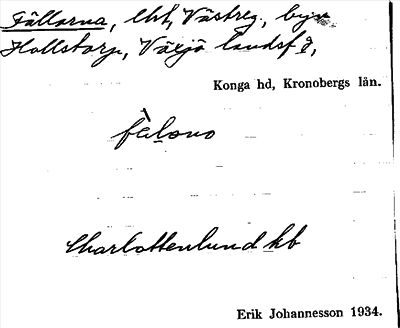 Fällorna, lht, Västreg., byn
Hollstorp, Växjö landsf.,
Konga hd, Kronobergs län.
Charlottenlund kb
Erik Johannesson 1934.